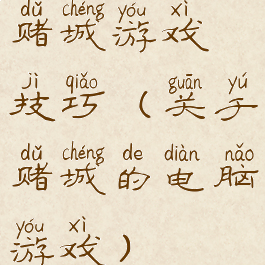 dǔ chéng yóu xì
赌城游戏
jì qiǎo guān yú
技巧（关于
dǔ chéng de diàn nǎo
赌城的电脑
yóu xì
游戏）